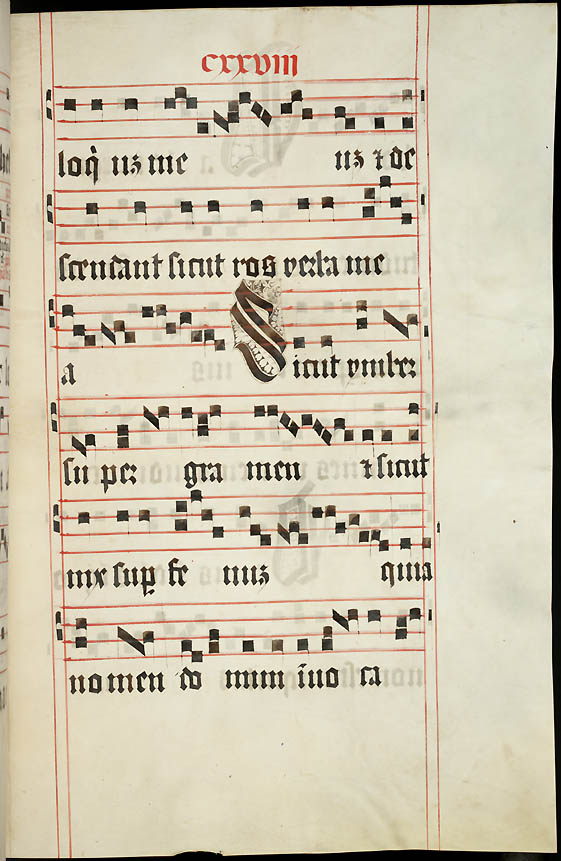 cxxviij
loq̇ uiz me uz ⁊ de
scendant sicut ros verba me
a Sicut ymber
su per gra men ⁊ sicut
nix sup̱ se miz quia
nomen do mini īuo ca